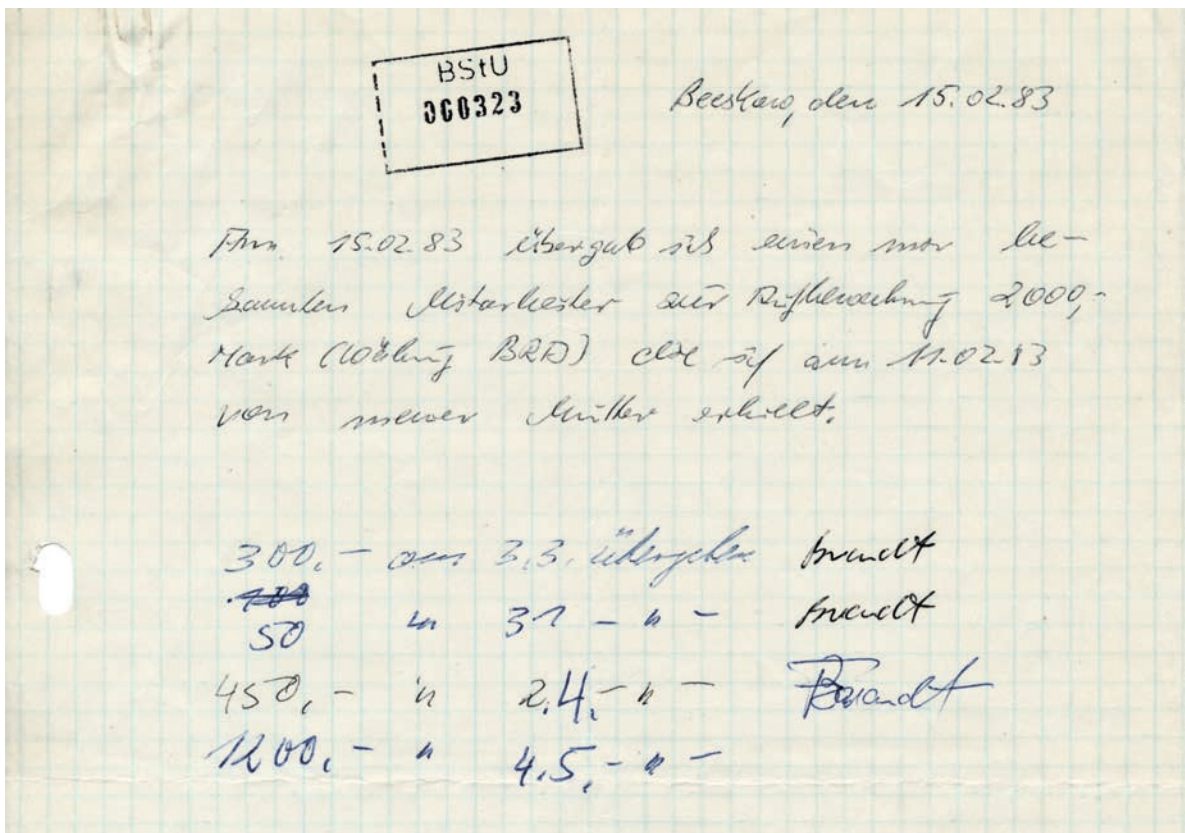 BStU
000323
Beeskow, den 15.02.83
Am 15.02.83 übergab ich einen mir be-
kannten Mitarbeiter zur Aufbewahrung 2000,-
Mark (Währung BRD) die ich am 11.02.83
von meiner Mutter erhielt.
300,- am 3.3. übergeben Brandt
50 " 31 - " - Brandt
450,- " 2.4. - " - Brandt
1200,- " 4.5. - " -